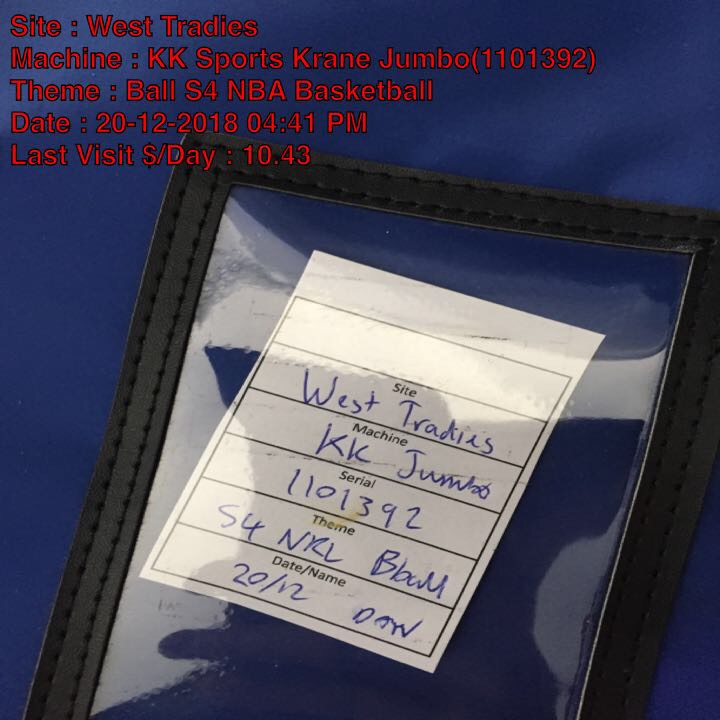 Site : West Tradies
Machine : KK Sports Krane Jumbo(1101392)
Theme : Ball S4 NBA Basketball
Date : 20-12-2018 04:41 PM
Last Visit $/Day : 10.43
Site
West Tradies
Machine
KK Jumbo
Serial
1101392
Theme
S4 NRL Bball
Date/Name
20/12